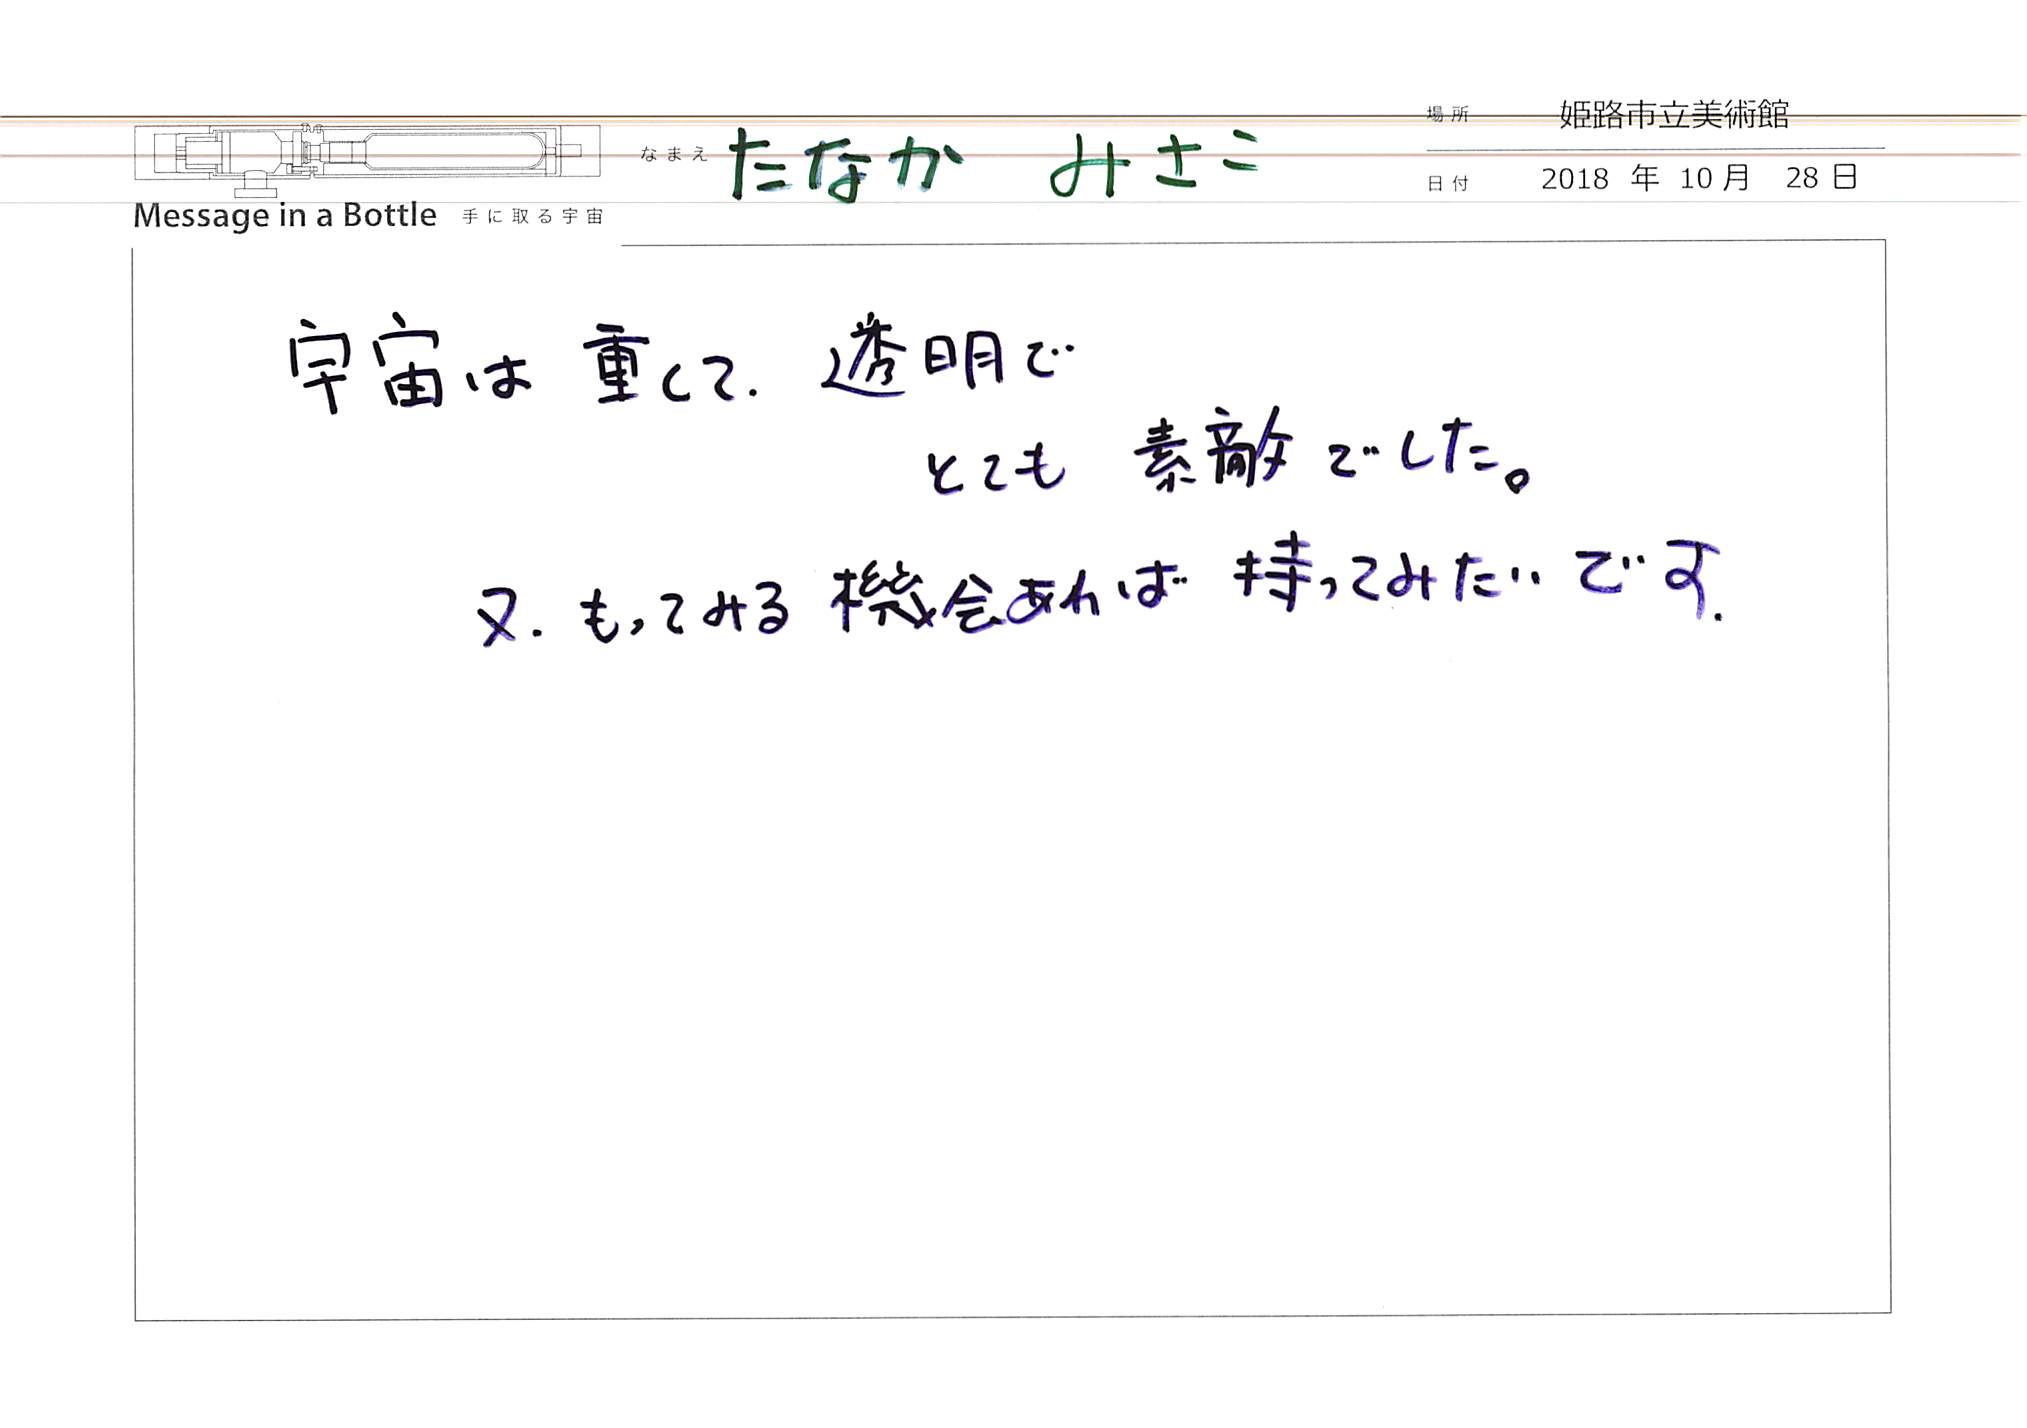 場所 姫路市立美術館
なまえ たなか みさこ
日付 2018 年 10 月 28 日
Message in a Bottle 手に取る宇宙
宇宙は 重くて. 透明で
とても 素敵でした。
又. もってみる 機会あれば 持ってみたいです.